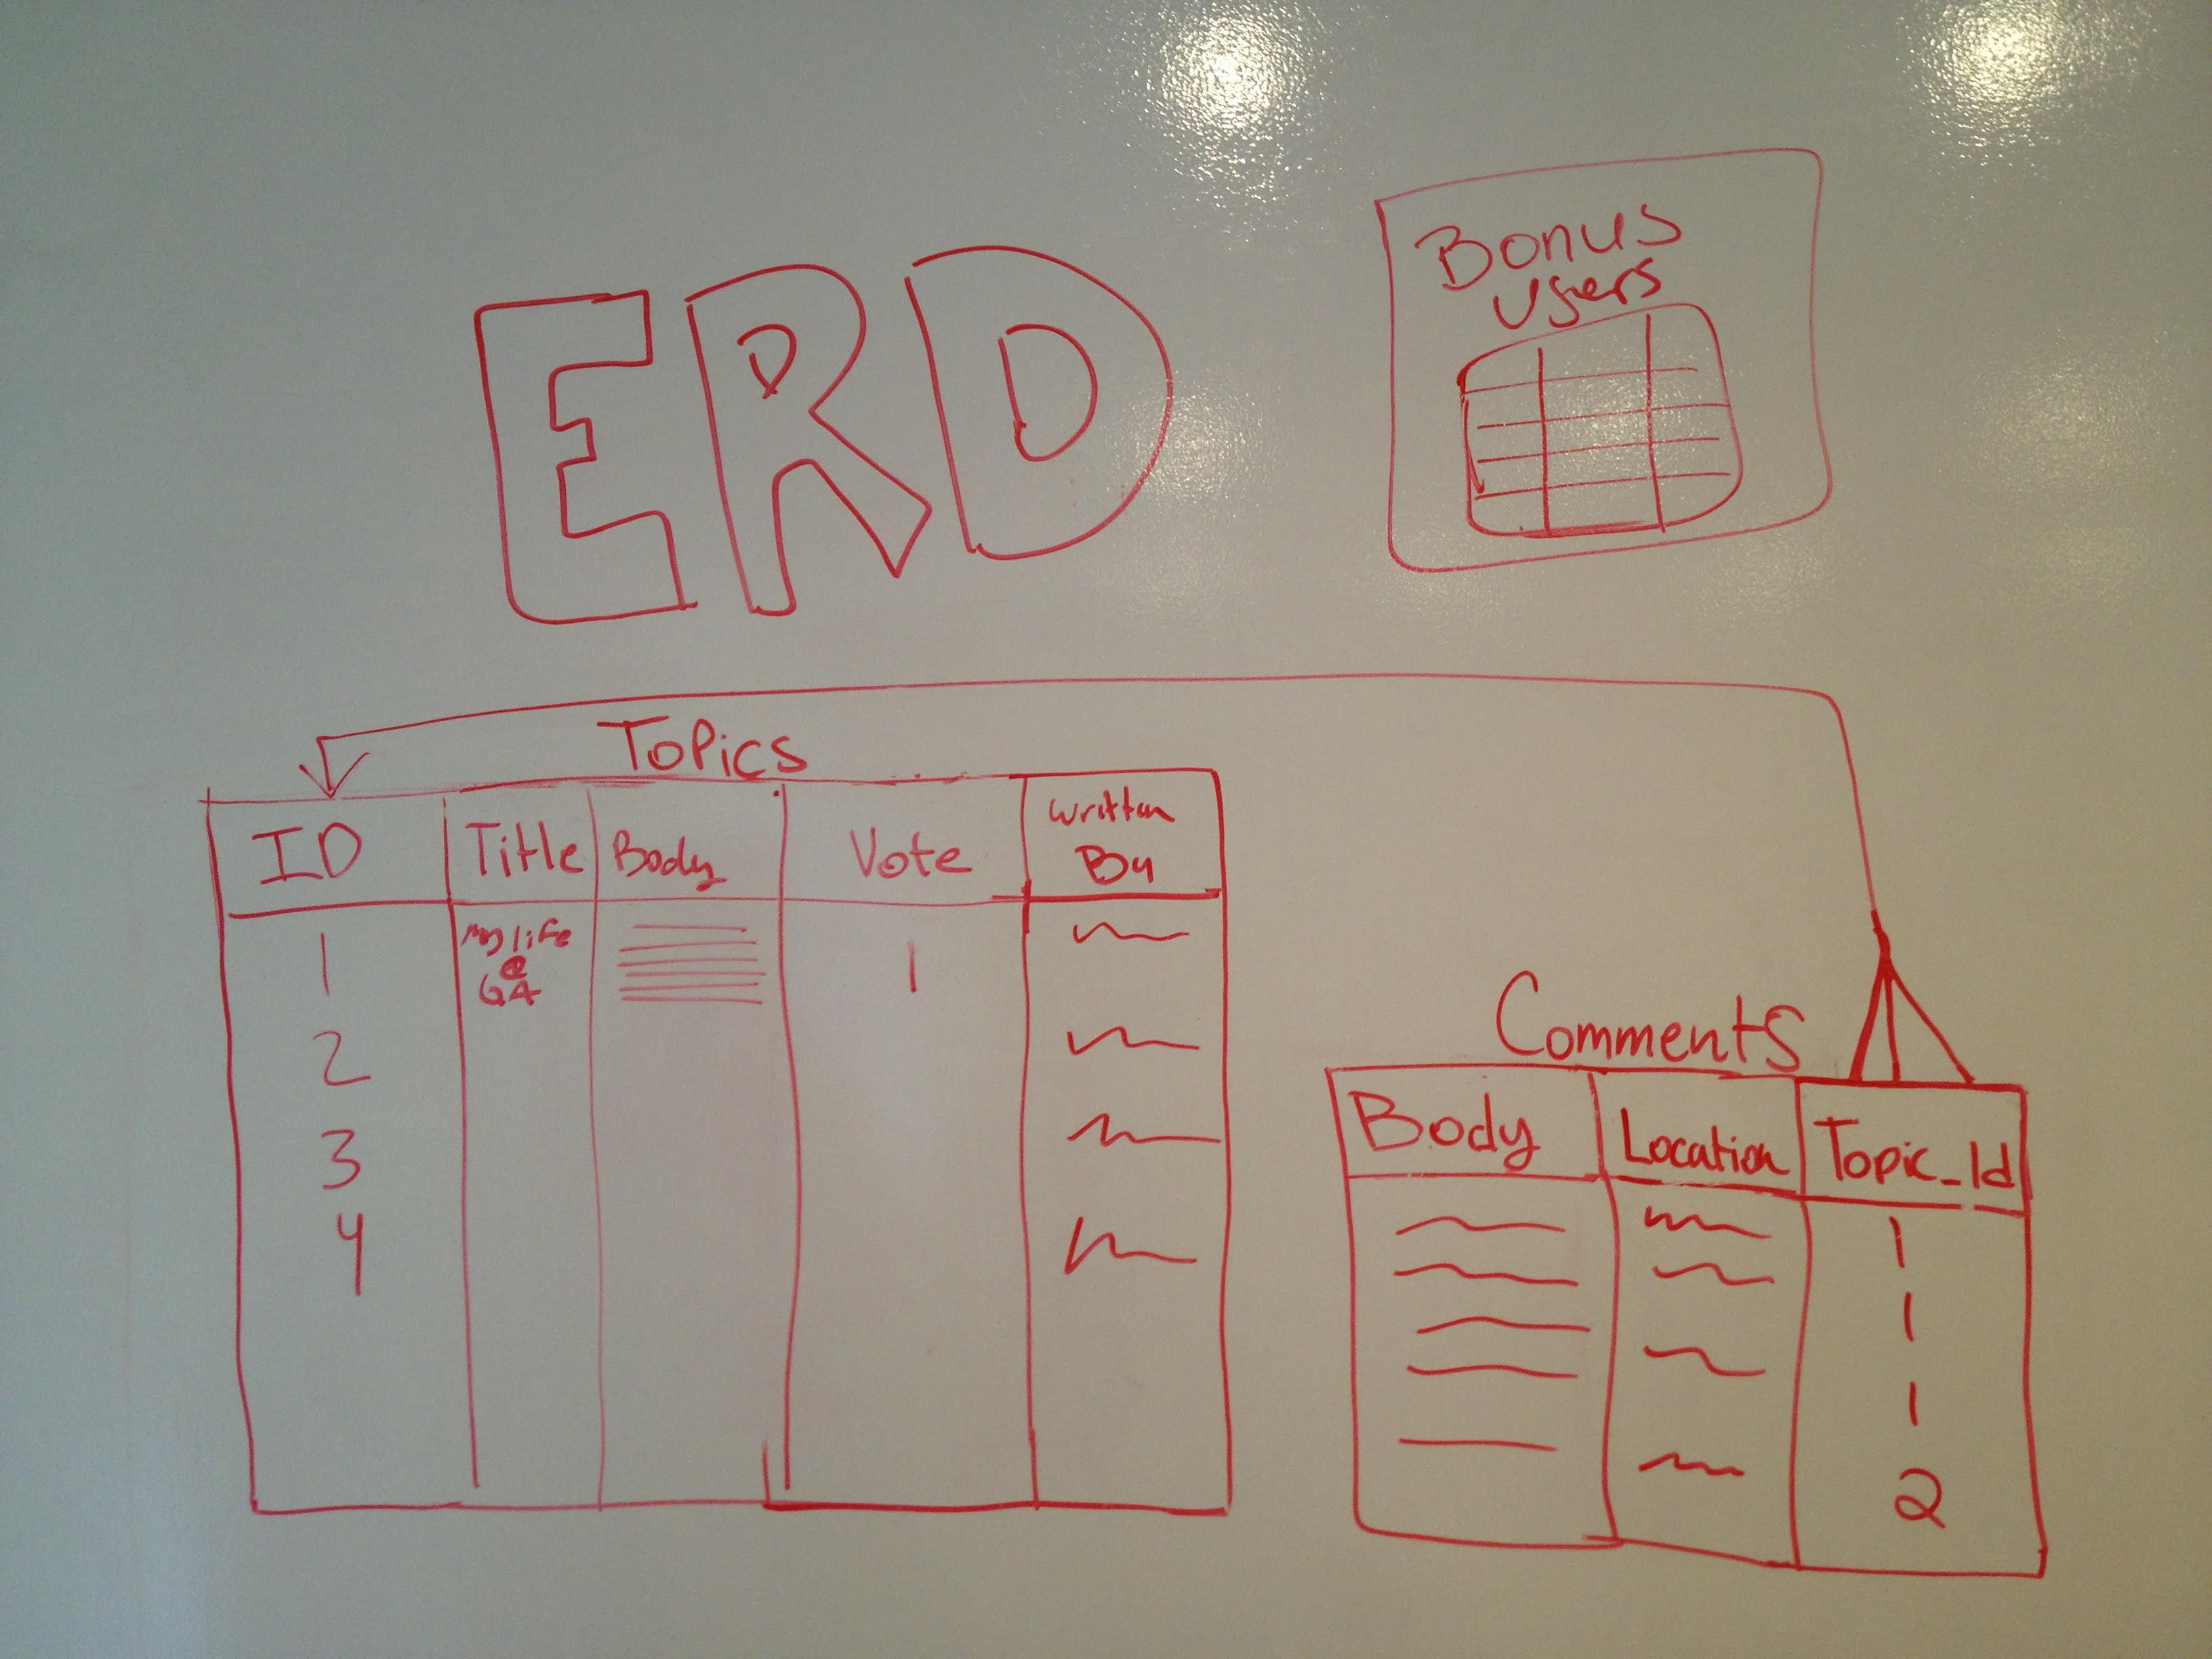 ERD
Bonus
Users
Topics
ID Title Body Vote Written
By
1 My life 1
@
GA
2
3
4
Comments
Body Location Topic_Id
1
1
1
2